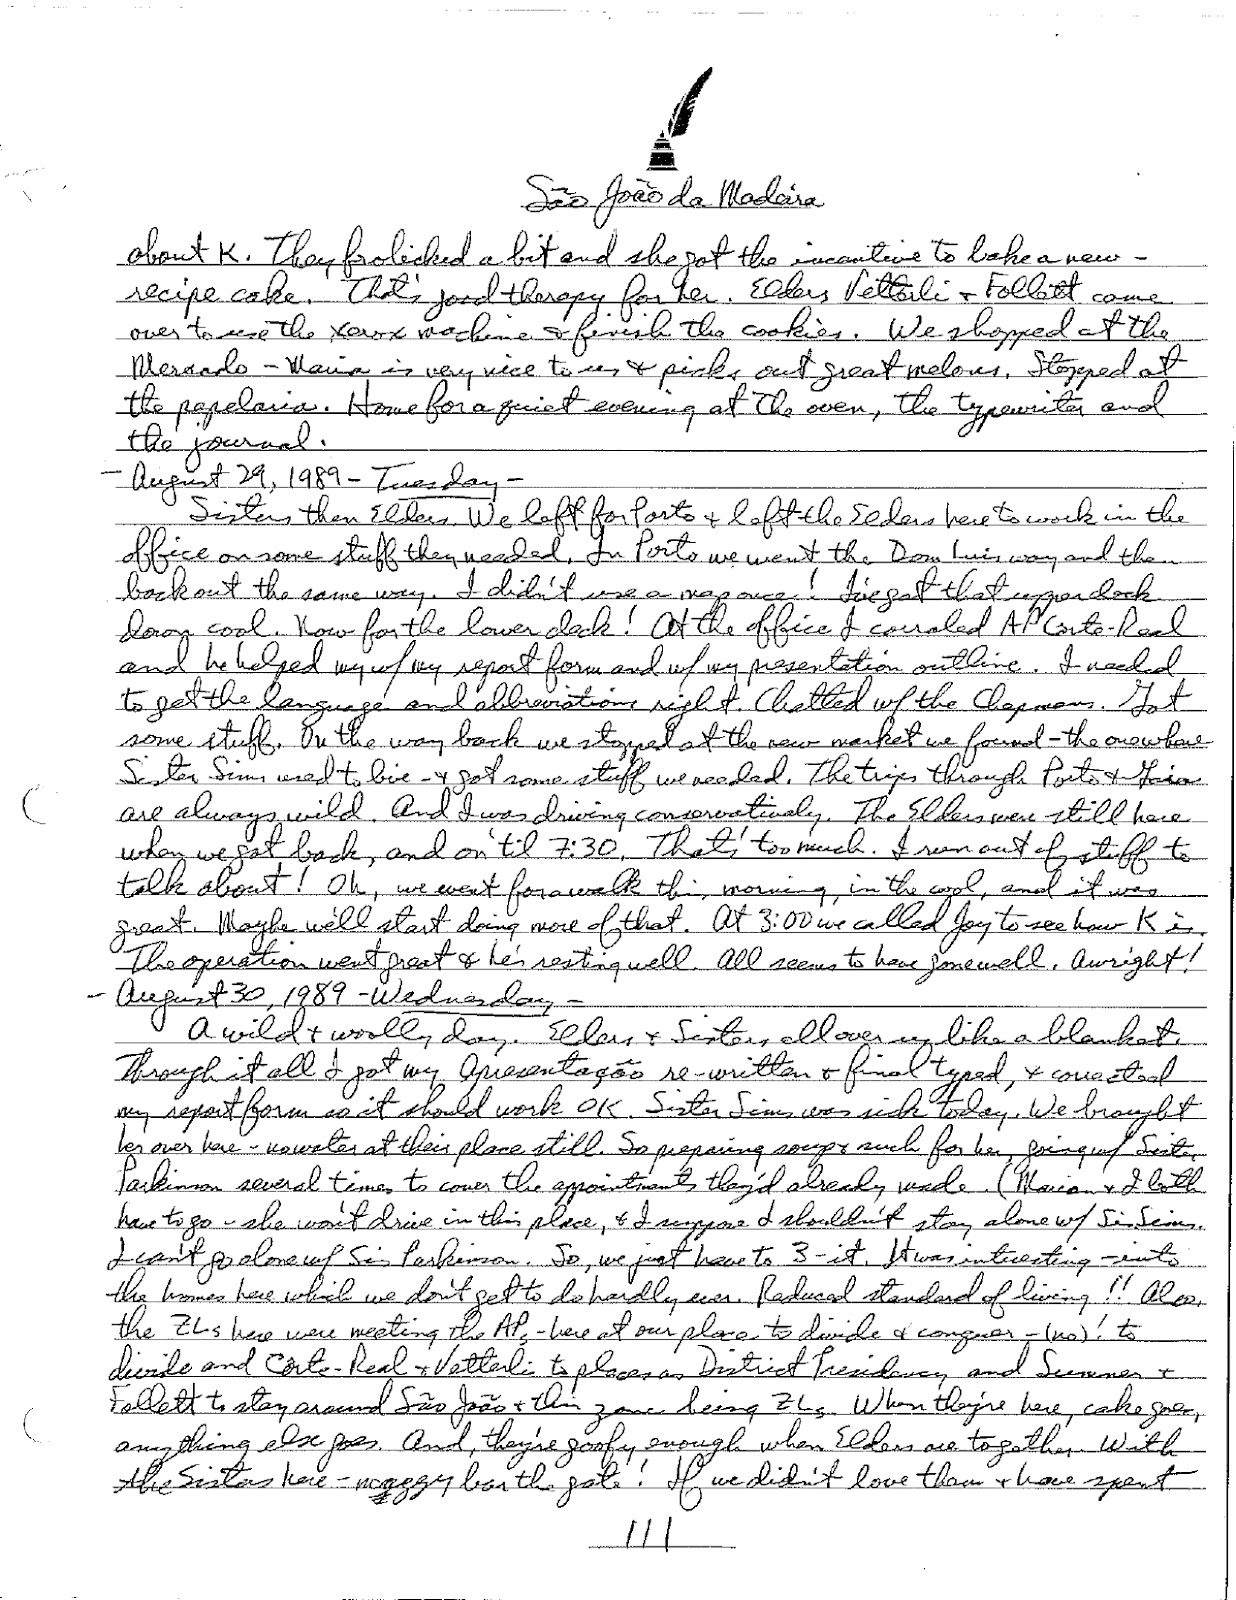 São João da Madeira
about K. They frolicked a bit and she got the incentive to bake a new-
recipe cake. That's good therapy for her. Elders Vetterli + Follett come
over to use the xerox machine & finish the cookies. We shopped at the
Mercado - Maria is very nice to us & picks out great melons. Stopped at
the papelaria. Home for a quiet evening at the oven, the typewriter and
the journal.
- August 29, 1989 - Tuesday -
Sisters then Elders. We left for Porto + left the Elders here to work in the
office on some stuff they needed. In Porto we went the Dom Luis way and then
back out the same way. I didn't use a map once! I've got that upper deck
down cool. Now for the lower deck! At the office I corraled AP Corte-Real
and he helped my w/ my report form and w/ my presentation outline. I needed
to get the language and abbreviations right. Chatted w/ the Chapmans. Got
some stuff. On the way back we stopped at the new market we found - the one where
Sister Sims used to live - & got some stuff we needed. The trips through Porto +
are always wild. And I was driving conservatively. The Elders were still here
when we got back, and on 'til 7:30. That's too much. I run out of stuff to
talk about! Oh, we went for a walk this morning, in the cool, and it was
great. Maybe we'll start doing more of that. At 3:00 we called Joy to see how K is.
The operation went great & he's resting well. All seems to have gone well. Awright!
- August 30, 1989 - Wednesday -
A wild + woolly day. Elders + Sisters all over us like a blanket.
Through it all I got my Apresentação re-written & final typed, & corrected
my report form so it should work OK. Sister Sims was sick today. We brought
her over here - no water at their place still. So preparing soup & such for her, going w/ Sister
Parkinson several times to cover the appointments they'd already made. (Marian & I both
have to go - she won't drive in this place, & I suppose I shouldn't stay alone w/ Sis Sims.
I can't go alone w/ Sis Parkinson. So, we just have to 3-it. It was interesting - into
the homes here which we don't get to do hardly ever. Reduced standard of living!! Also,
the ZLs here were meeting the APs - here at our place to divide & conquer - (no)! to
divide and Corte-Real + Vetterli to places as District Presidency and Summer +
Follett to stay around São João + this zone being ZLs. When they're here, cake goes,
anything else goes. And, they're goofy enough when Elders are together. With
the Sisters here - bar the gate! If we didn't love them & have spent
111